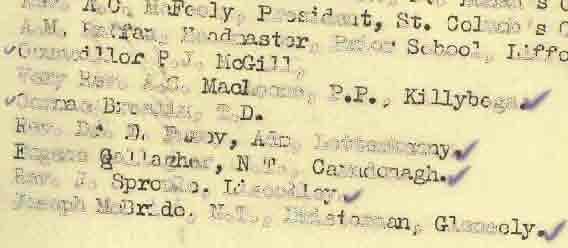 Rev. A.C. McFeely, President, St. Columb's C
A.M. Headmaster, Prior School, Liffo
Councillor P.J. McGill,
Very Rev. A.C. P.P., Killybegs.
Cormac Breslin, T.D.
Rev. Dr. D. Adm, Letterkenny.
Eugene Gallagher, N.T., Carndonagh.
Rev. Sproule,
Joseph McBride, N.T., Gleneely.